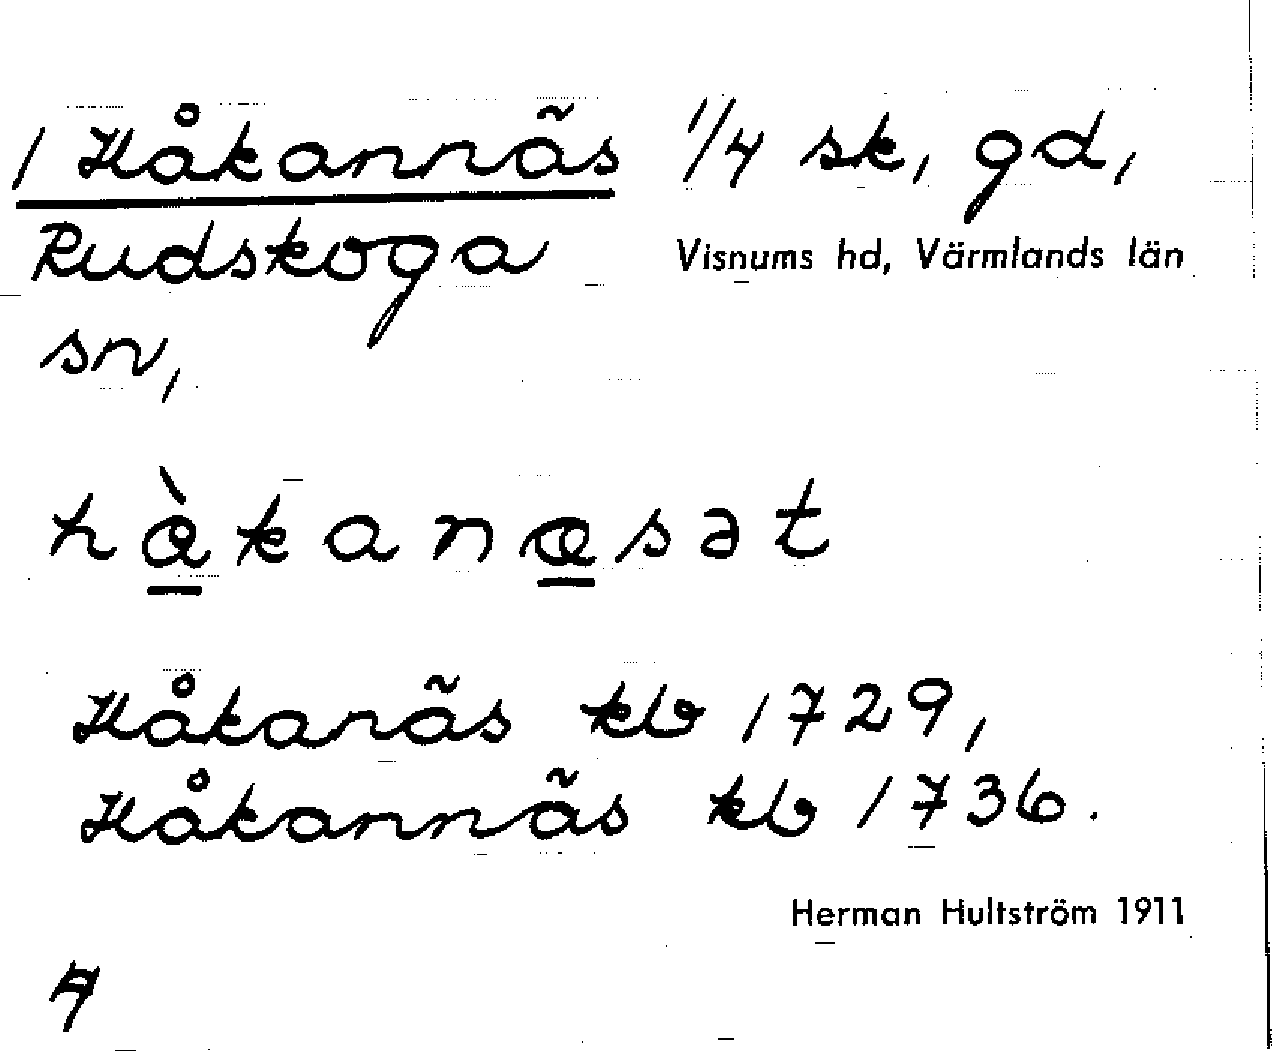 1 Håkannäs 1/4 sk, gd,
Rudskoga Visnums hd, Värmlands län
sn,
hàkanasət
Håkanäs kb 1729,
Håkannäs kb 1736.
Herman Hultström 1911